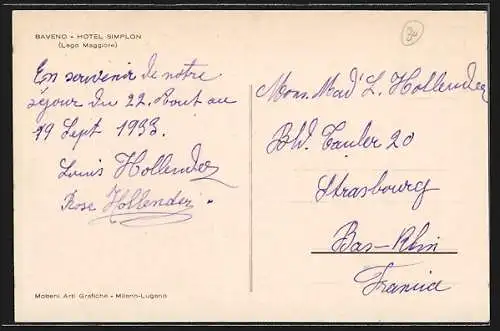 BAVENO - HOTEL SIMPLON
(Lago Maggiore)
En souvenir de notre
séjour du 22. Aout au
19 Sept 1933.
Louis Hollender
Rose Hollender.
Mobeni Arti Grafiche - Milano-Lugano
30
Mons. Mad' L. Hollender
Bld. Tauler 20
Strasbourg
Bas-Rhin
Francia